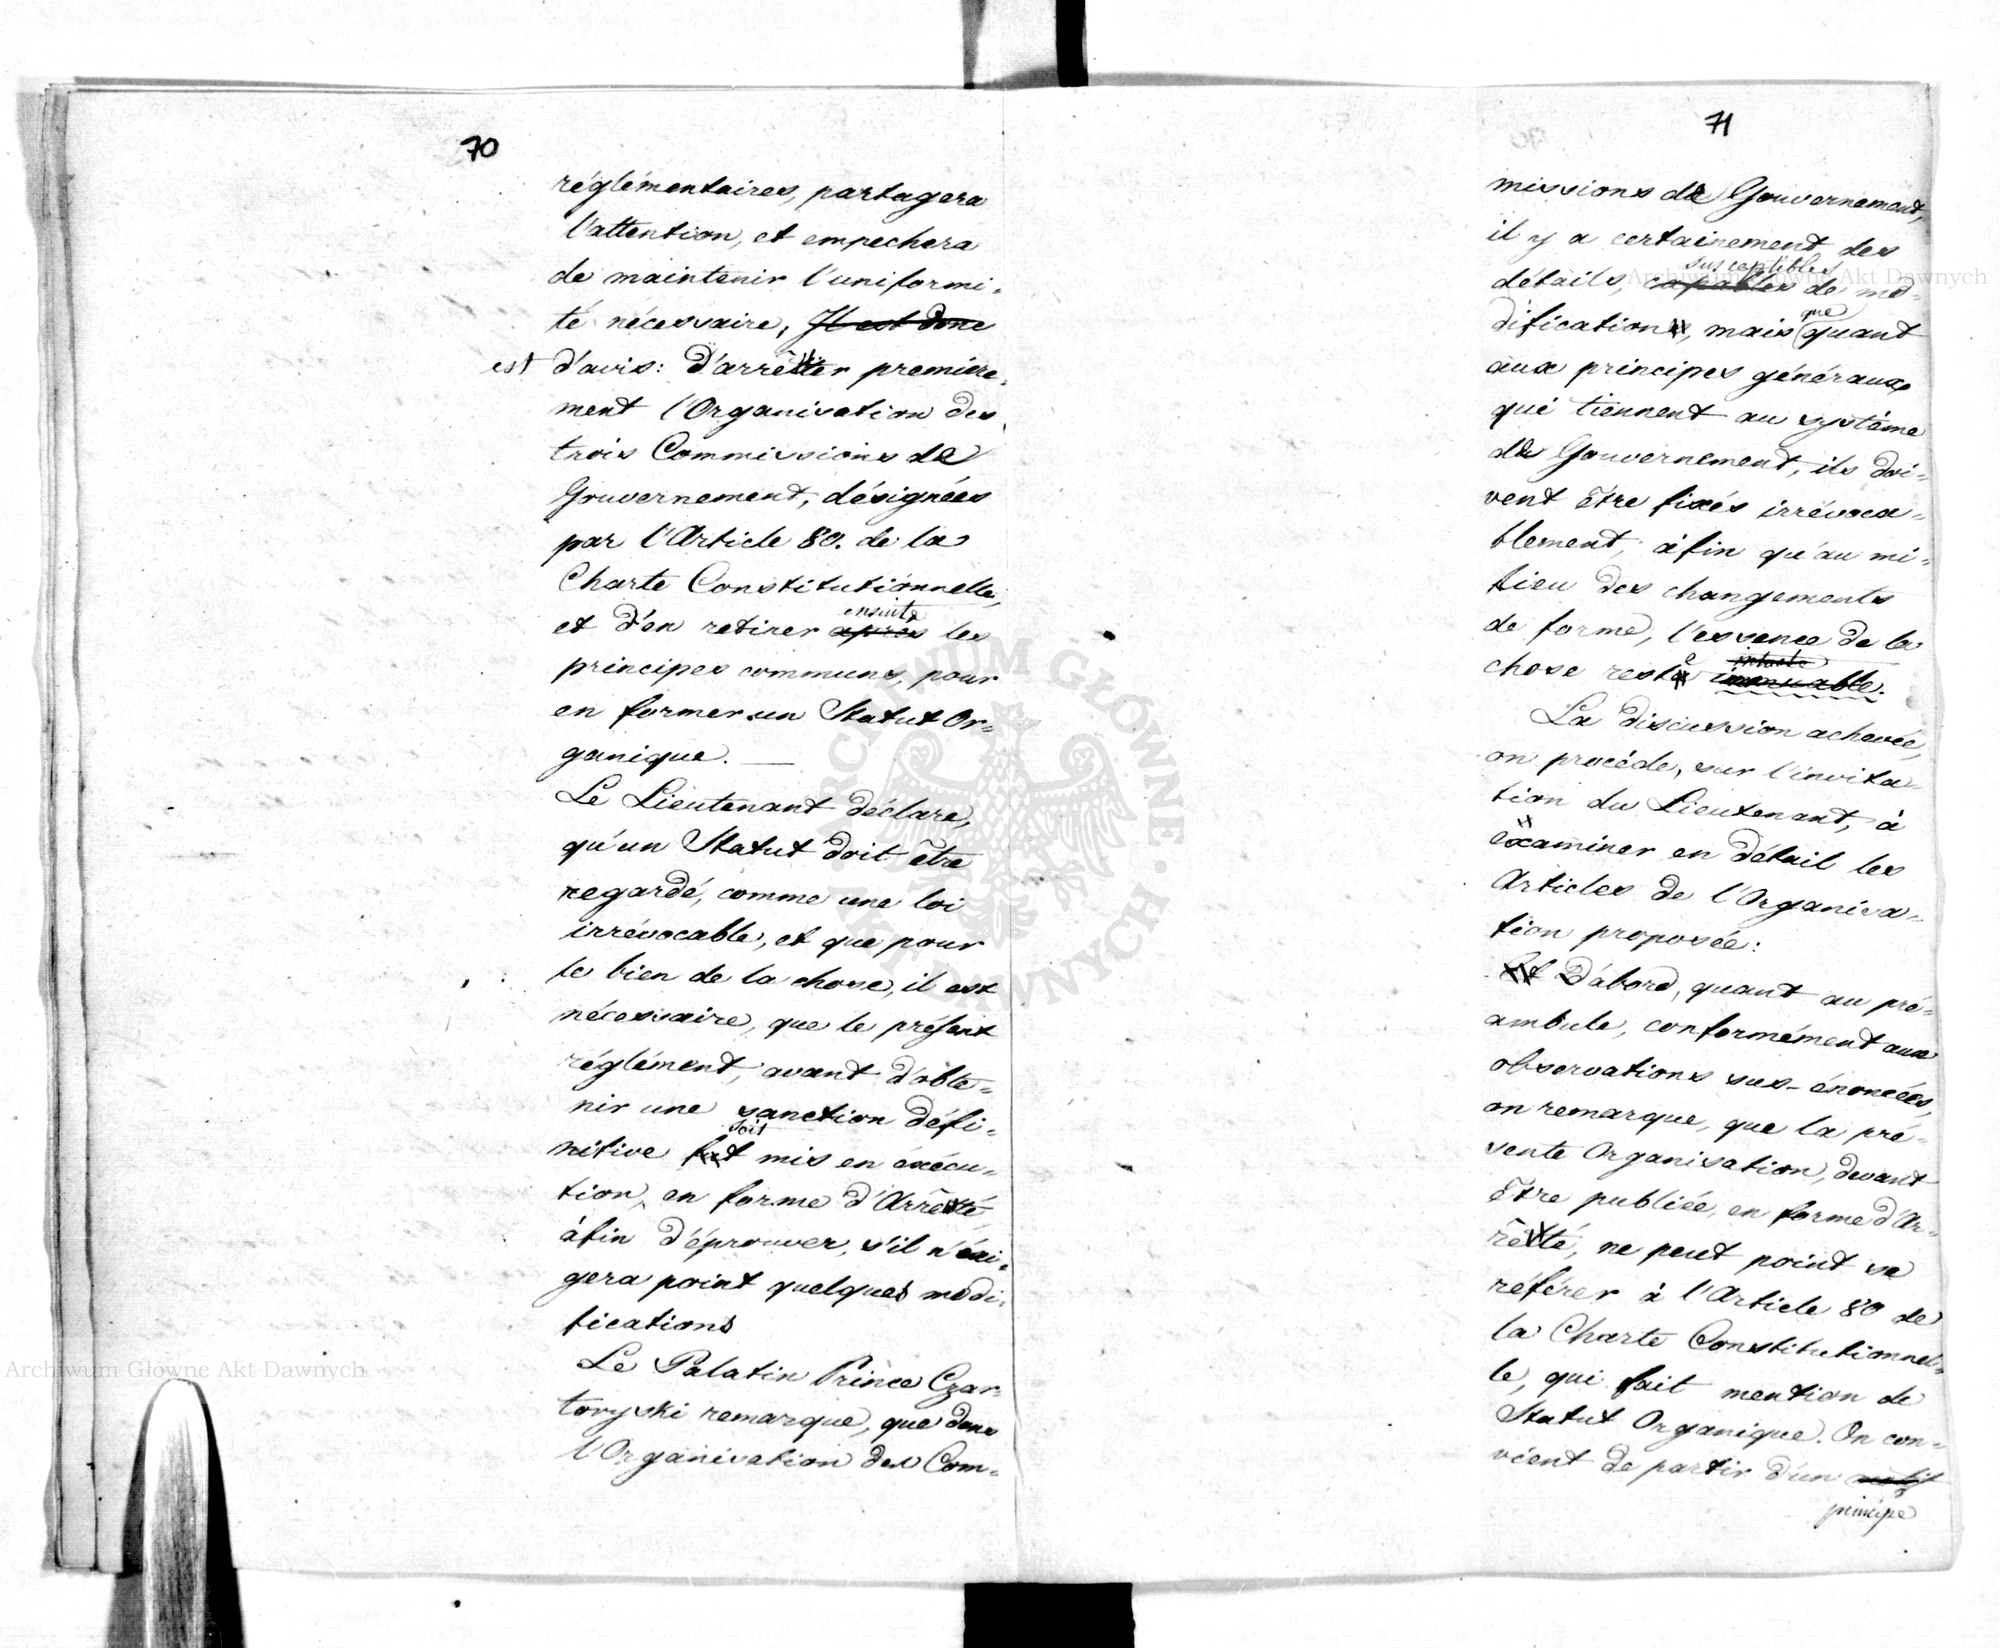 70
réglémentaires, partagera
l'attention, et empechera
de maintenir l'uniformi=
té nécessaire, Il est donc
est d'avis: d'arrêter premiére=
ment l'Organisation des
trois Commissions de
Gouvernement, désignées
par l'Article 80. de la
Charte Constitutionnelle,
ensuite
et d'en retirer après les
principes communs, pour
en former un Statut Or=
ganique. —
Le Lieutenant déclare,
qu'un Statut doit être
regardé, comme une loi
irrévocable, et que pour
le bien de la chose, il est
nécessaire, que le présent
réglément, avant d'obte=
nir une sanction défi=
soit
nitive fut mis en éxécu=
tion, en forme d'Arrêté,
àfin d'éprouver, s'il n'éxi=
gera point quelques modi=
fications
Le Palatin Prince Czar=
toryski remarque, que dans
l'Organisation des Com=
71
missions de Gouvernement,
il y a certainement des
susceptibles
détails, capables de mo=
que
dification, mais quant
aux principes généraux
qui tiennent au systéme
de Gouvernement, ils doi=
vent être fixés irrévoca=
blement, àfin qu'au mi=
lieu des changements
de forme, l'essence de la
intacte
chose reste immuable.
La discussion achevée,
on procéde, sur l'invita=
tion du Lieutenant, à
examiner en détail les
Articles de l'Organisa=
tion proposée:
Et D'abord, quant au pré=
ambule, conformément aux
observations sus-énoncées,
on remarque, que la pré=
sente Organisation, devant
être publiée, en forme d'Ar=
rêté, ne peut point se
référer à l'Article 80 de
la Charte Constitutionnel=
le, qui fait mention de
Statut Organique. On con=
vient de partir d'un motif
principe
Archiwum Główne Akt Dawnych
Archiwum Główne Akt Dawnych
ARCHIWUM GŁÓWNE · AKT DAWNYCH ·